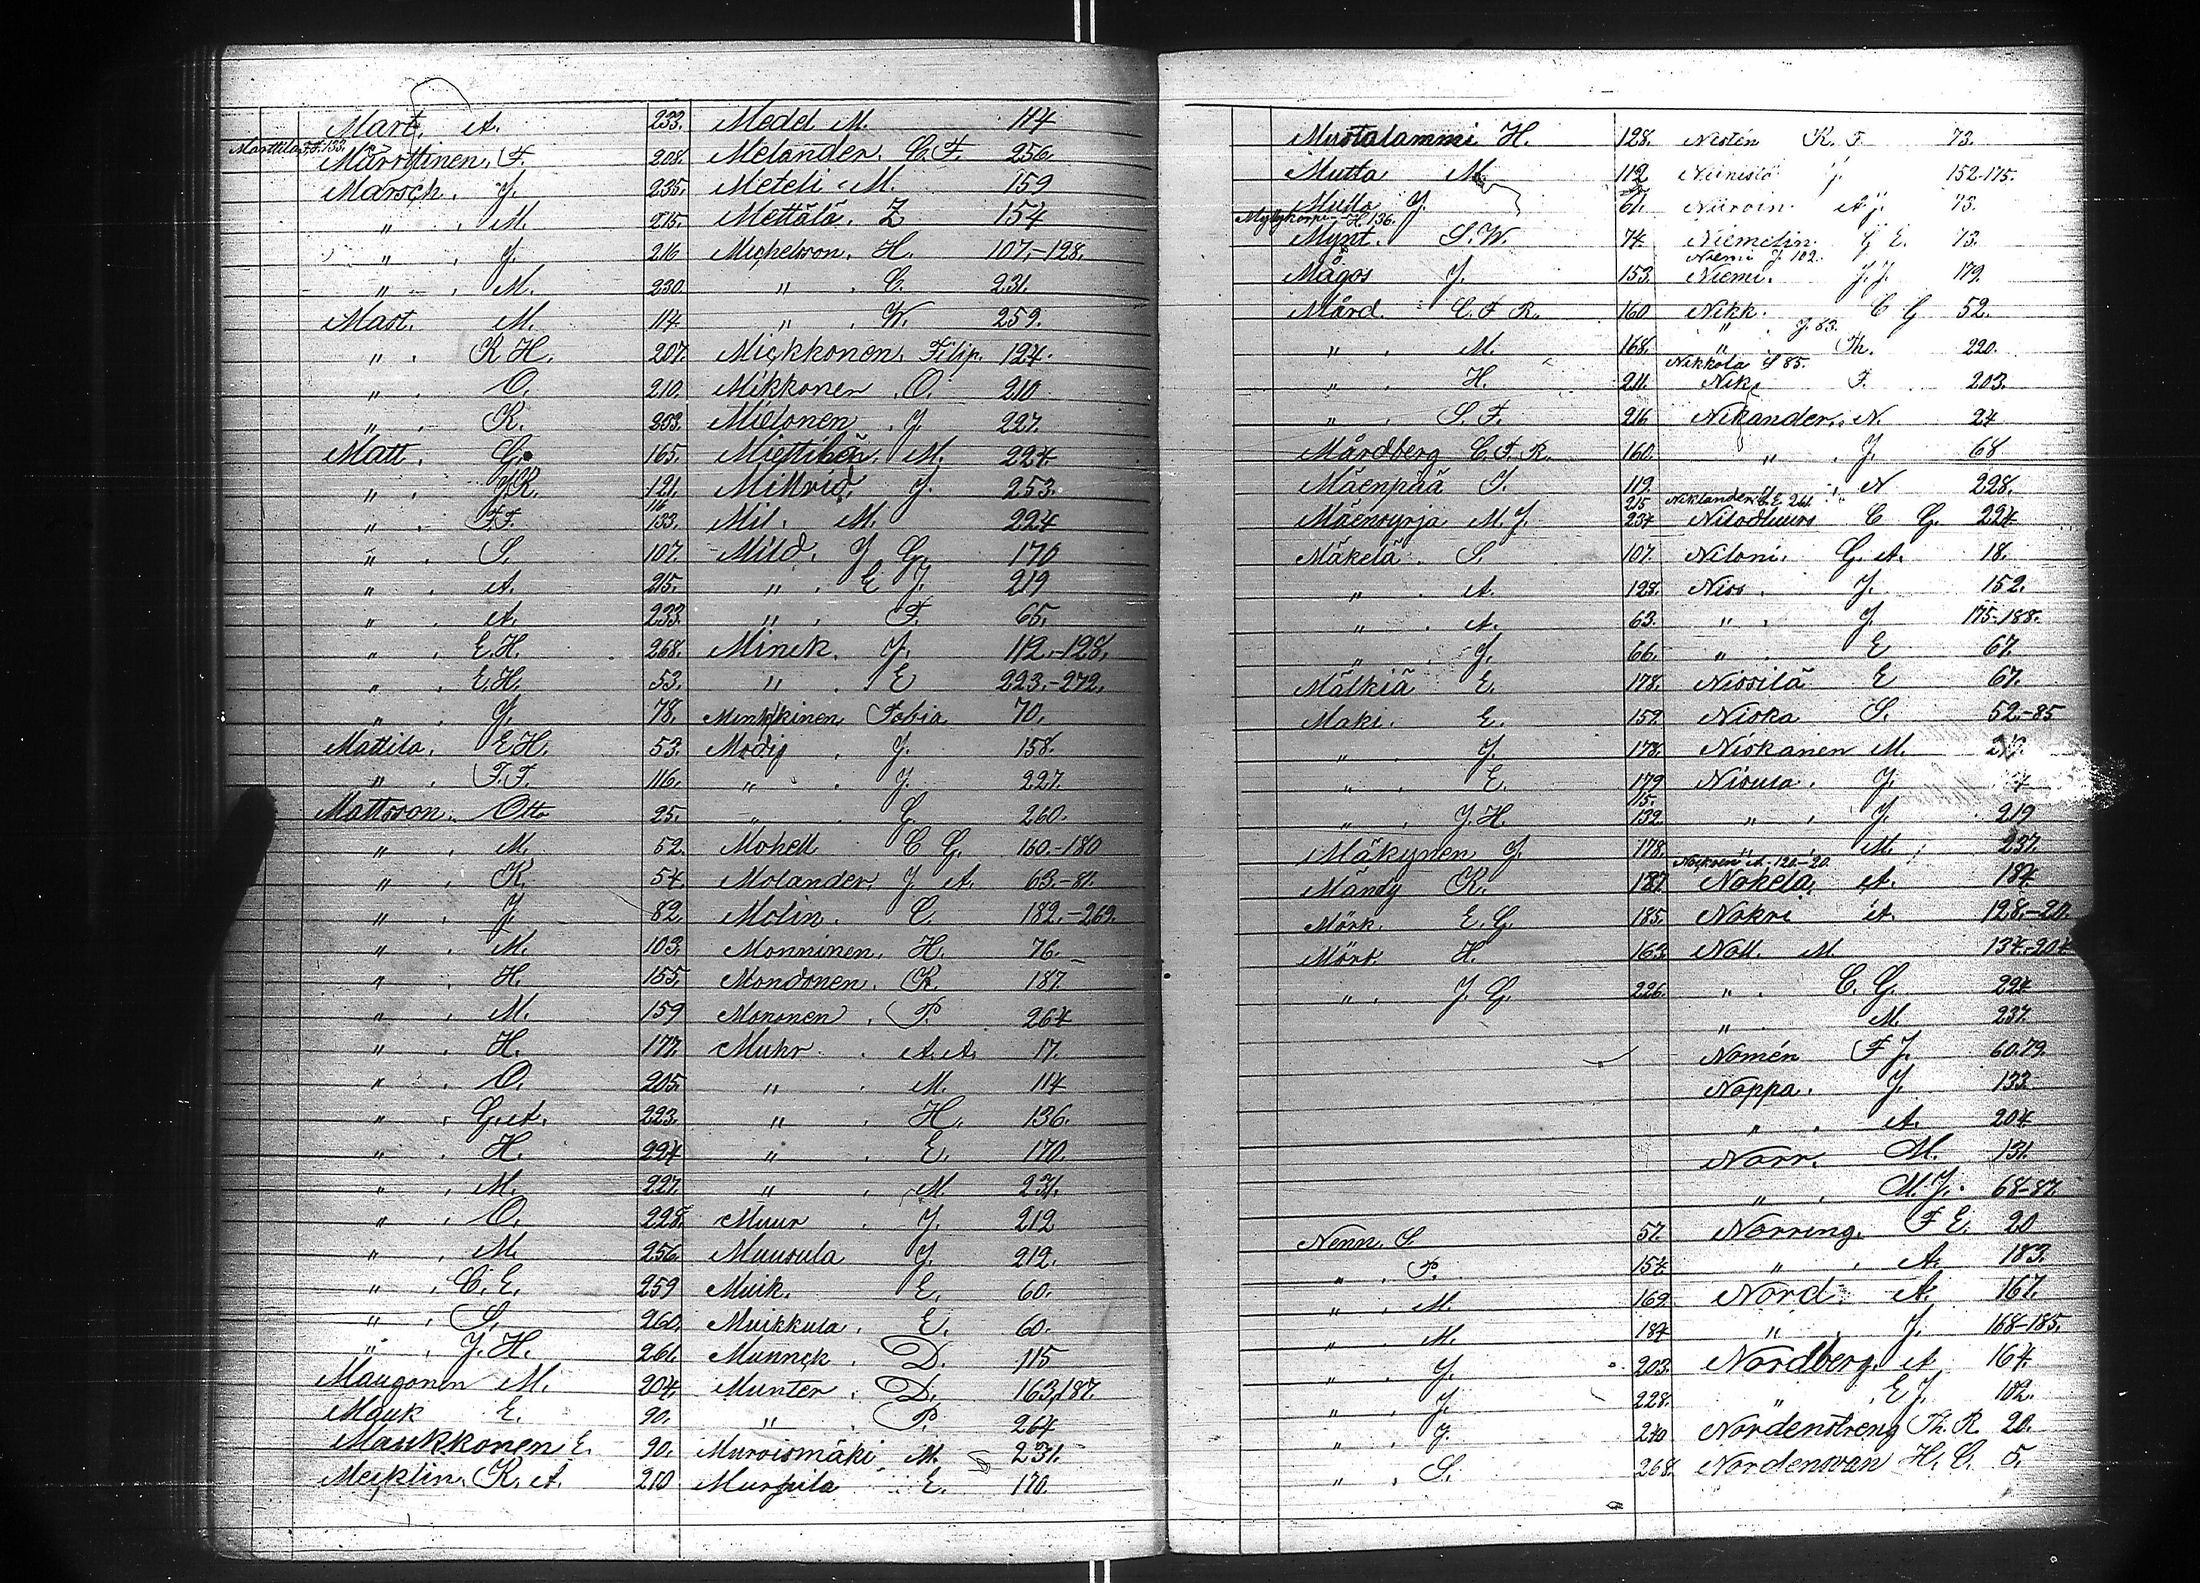 Mart. A. 233.
Marttila F.F. 133.
Marttinen. F. 208.
Marsch. J. 235.
" . M. 215.
" . J. 216
" . M. 230
Mast. M. 114.
" . K H. 207.
" . O. 210.
" . K. 203.
Matt. G. 165.
" . J K. 121.
" . F.F. 116 133.
" . S. 107.
" . A. 215.
" . A. 233.
" . E.H. 268.
" . E.H. 53.
" . J. 78.
Mattila. E.H. 53.
" . F.F. 116.
Mattsson. Otto 25.
" . M. 52.
" . K. 54.
" . J. 82.
" . M. 103.
" . H. 155.
" . M. 159
" . H. 177.
" . O. 205.
" . G. A. 223.
" . H. 224
" . M. 227.
" . O. 228.
" . M. 256.
" . C. E. 259
" . S. 260.
" . J. H. 261.
Maugonen M. 204.
Mauk E. 90.
Maukkonen E. 90.
Mecklin. K. A. 210
Medel M. 114
Melander. C. F. 256.
Meteli M. 159
Mettälä. Z 154
Michelsson. H. 107.-128.
" . C. 231.
" . W. 259.
Mickkonen. Filip. 124.
Mikkonen . O. 210
Mielonen . J. 227.
Miettinen. M. 224.
Mikvid. J. 253.
Mil. M. 224
Mild. J G. 170
" . E J. 219
" . F. 65.
Minck. J. 112.-128.
" . E 223.-272.
Minkkinen Tobia 70.
Modig . J. 158.
" . J. 227.
" . G. 260.
Mohell C G. 160.-180
Molander. J A. 63.-81.
Molin. C. 182.-269.
Monninen. H. 76.
Mondonen. K. 187
Mononen . P. 264
Muhr . A. A. 17.
" . M. 114
" . H. 136.
" . E. 170.
" . M. 231.
Muur . J. 212
Muurula J. 212.
Muik. E. 60.
Muikkula. E. 60.
Munnck . D. 115
Munter . D. 163,187.
" . P. 264
Muroismäki M. 231.
Murpila E. 170.
Mustalammi H. 128.
Mutta M. 112
Mulla J. 61.
Myllykorpi H. 136.
Mynt. S. W. 74.
Mågos J. 153.
Mård C. F. R. 160
" . M. 168.
" . H. 211.
" . S. F. 216
Mårdberg C. F. R. 160.
Mäenpää J. 119
Mäensyrja M. J. 215 234
Mäkelä S. 107.
" . A. 128.
" . A. 63.
" . J. 66.
Mälkiä E. 178.
Maki. E. 159.
" . J. 178.
" . E. 179
" . J. H. 115. 132.
Mäkynen J. 178.
Mändy K. 187.
Mörk. E. G. 185.
Mört. H. 163.
" . J. G. 226.
Nenn. S. 57.
" . P. 154.
" . M. 169.
" . M. 184
" . J. 203.
" . J. 228.
" . J. 240
" . S. 268.
Nestén K. F. 73.
Niinistö J. 152-175.
Niiroin. A J. 73.
Niemelin. G E. 73.
Niemi J 102.
Niemi. J. J. 179.
Nikk. C G 52.
" . J. 83.
" . Th. 220.
Nikkola S 85.
Nik. F. 203.
Nikander. N. 24
" . J. 68
" . N 228.
Niklander C. E. 261.
Nilodhuurs C G. 224
Niloni. G. A. 18.
Niss. J. 152.
" . J. 175-188.
" . E 67.
Nissilä E 67.
Niska S. 52.-85
Niskanen M.
Nisula. J.
" . J. 219
" . M. 237.
A. 120-20.
Nokela A. 184
Nokri A. 128.-20.
Noll. M. 134.-204
" . C. G. 224
" . M. 237.
Nomén F J. 60.79.
Noppa. J. 133
" . A. 204
Norr. M. 131.
" . M. J. 68-87.
Norring. F E. 20
" . A. 183.
Nord. A. 167.
" . J. 168-185.
Nordberg. A 164.
" . E J. 102.
Nordenstreng Th. R 20.
Nordensvan H. C. 5.